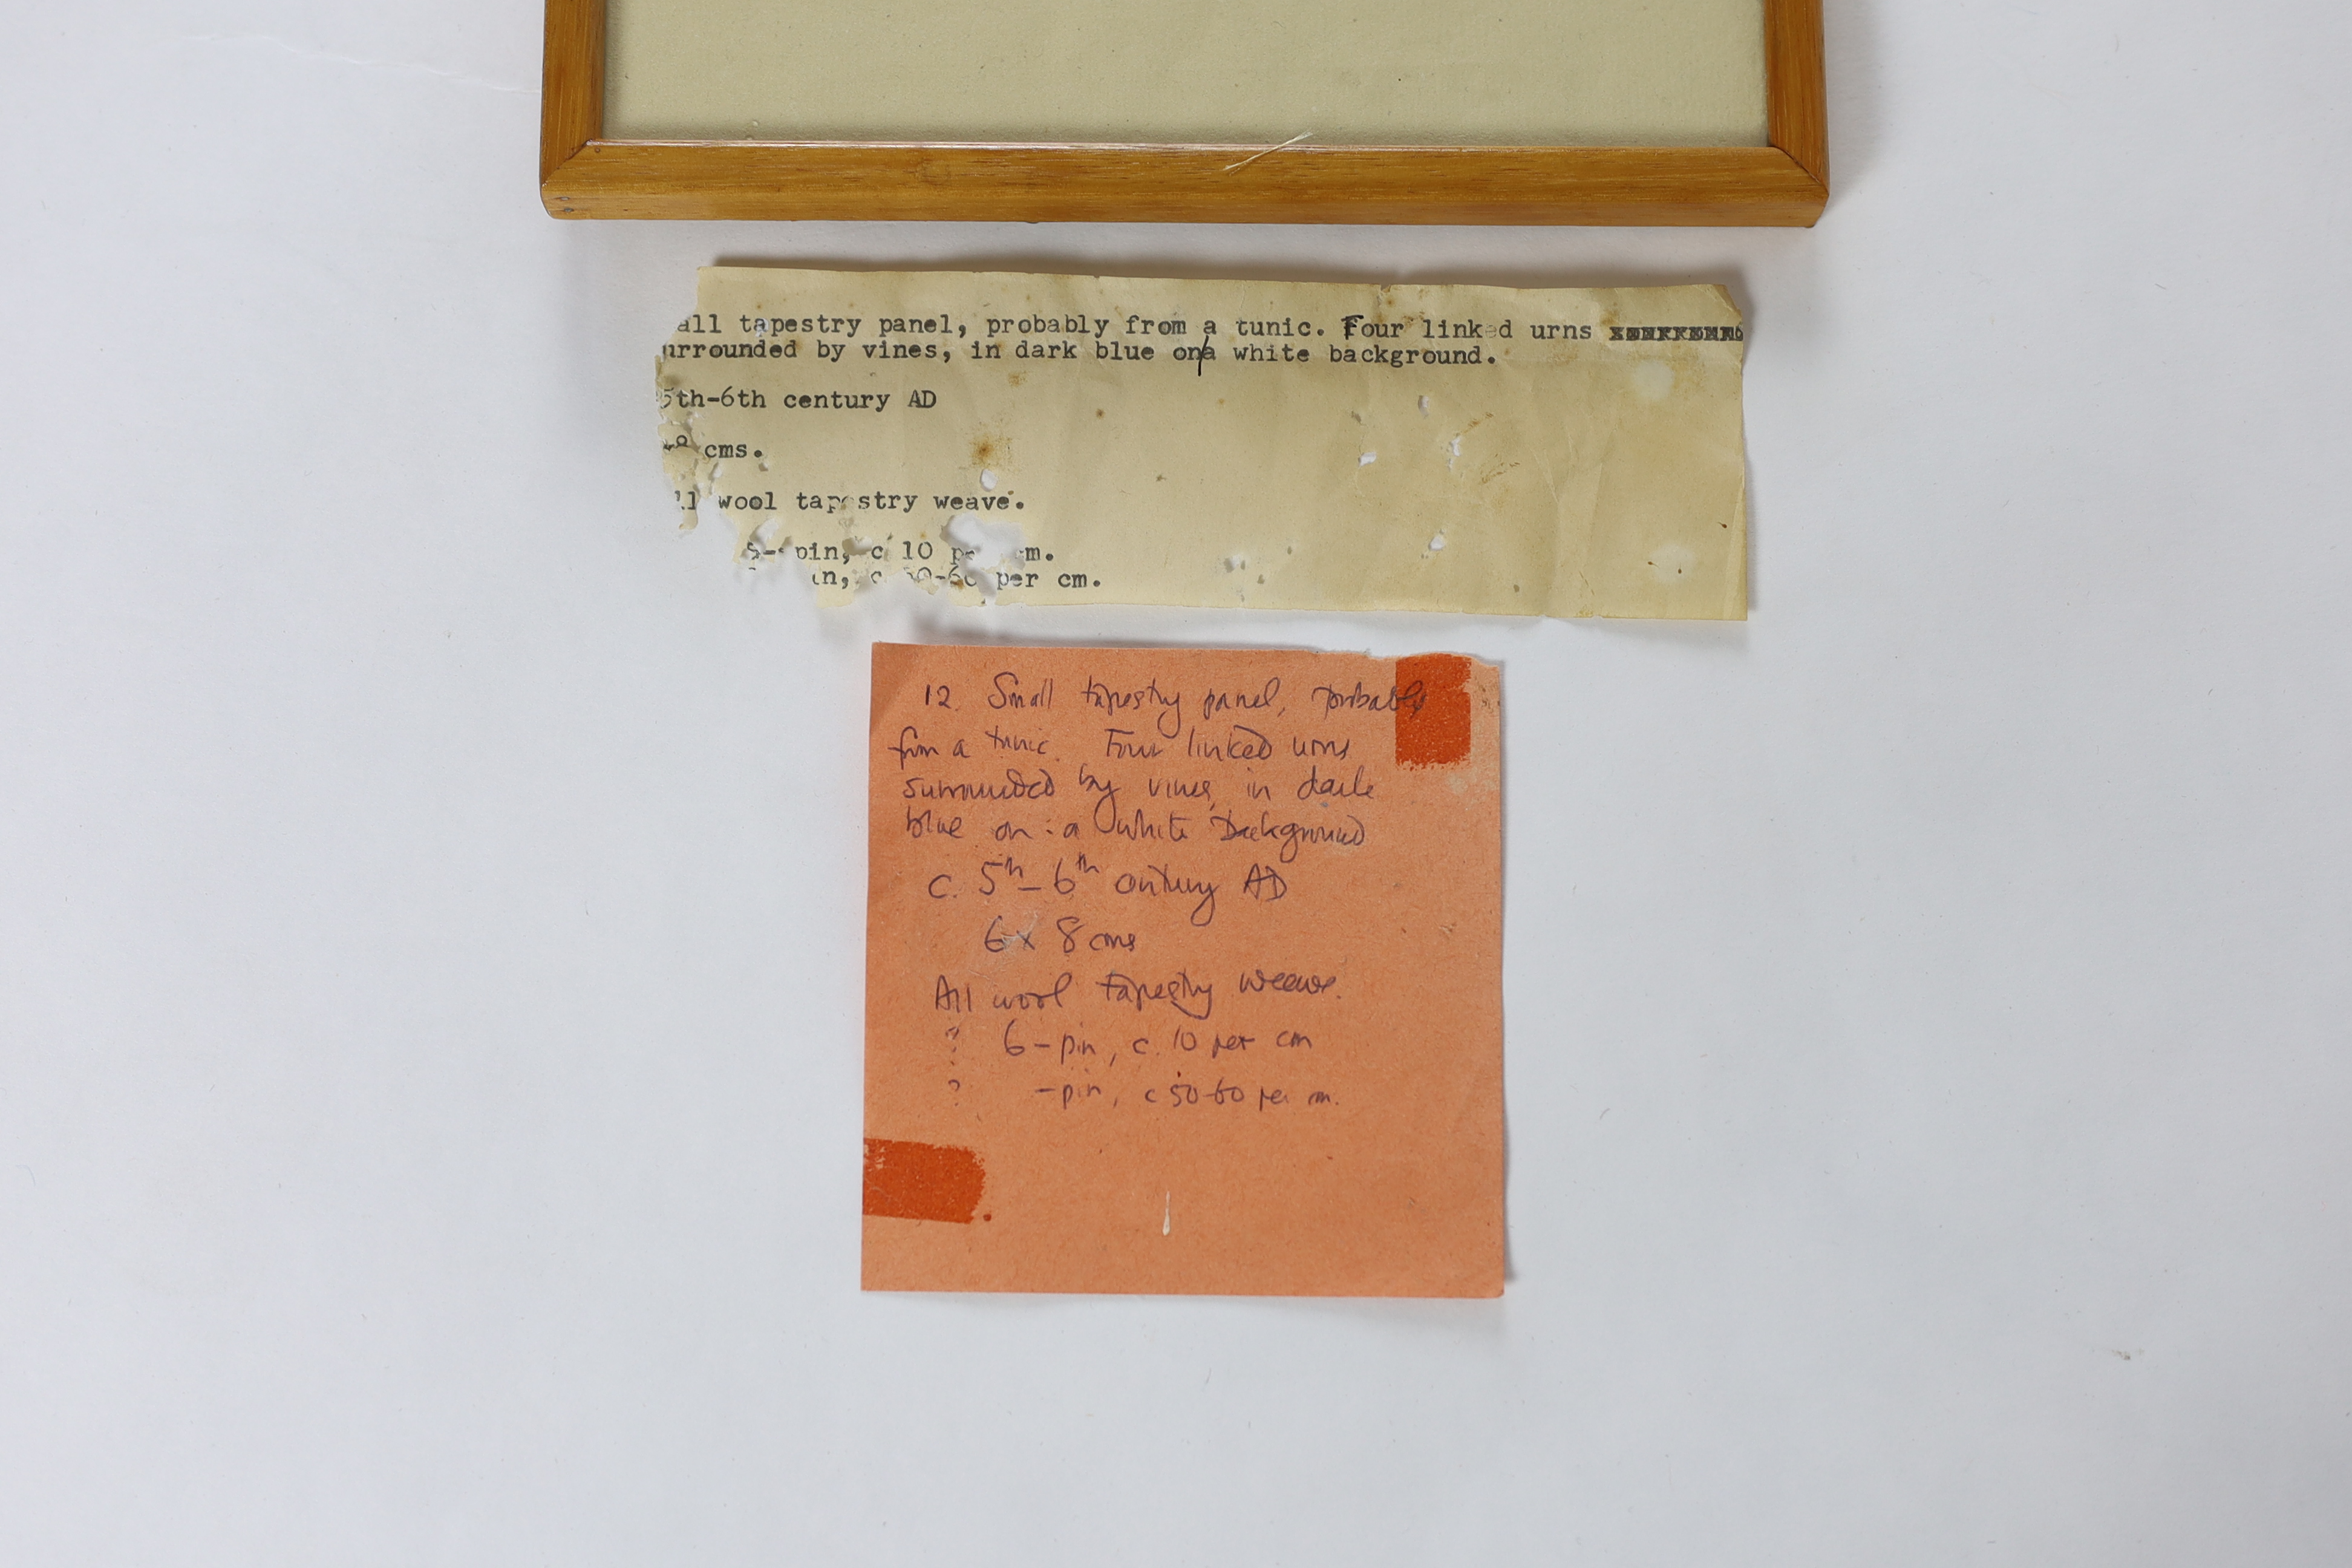 all tapestry panel, probably from a tunic. Four linked urns
urrounded by vines, in dark blue on/a white background.
5th-6th century AD
8 cms.
ll wool tapestry weave.
S- pin, c 10 pe m.
n, c 0-60 per cm.
12. Small tapestry panel, probably
from a tunic. Four linked urns
surrounded by vines, in dark
blue on : a white background
c. 5th - 6th century AD
6 x 8 cms
All wool tapestry weave.
? 6 - pin, c. 10 per cm
? - pin, c 50-60 per cm.